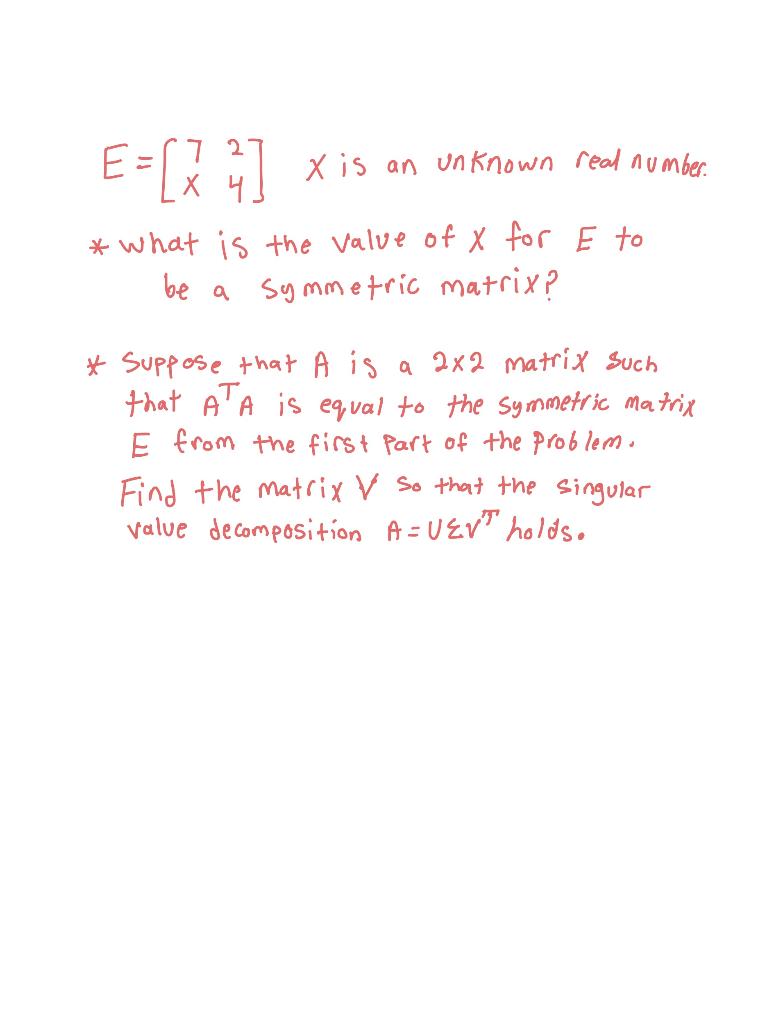 E = [7 2] X is an unknown real number.
[X 4]
* What is the value of X for E to
be a symmetric matrix?
* Suppose that A is a 2x2 matrix such
that A^T A is equal to the symmetric matrix
E from the first part of the problem.
Find the matrix V so that the singular
value decomposition A = UΣV^T holds.